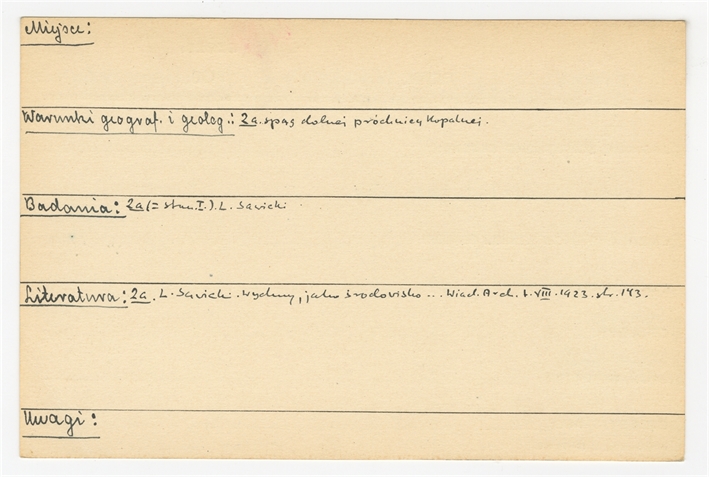 Miejsce:
Warunki geograf. i geolog.: 2a. spąg dolnej próchnicy kopalnej.
Badania: 2a (= stan. I.). L. Sawicki.
Literatura: 2a. L. Sawicki. Wydmy, jako środowisko... Wiad. Arch. t. VIII. 1923. str. 143.
Uwagi: